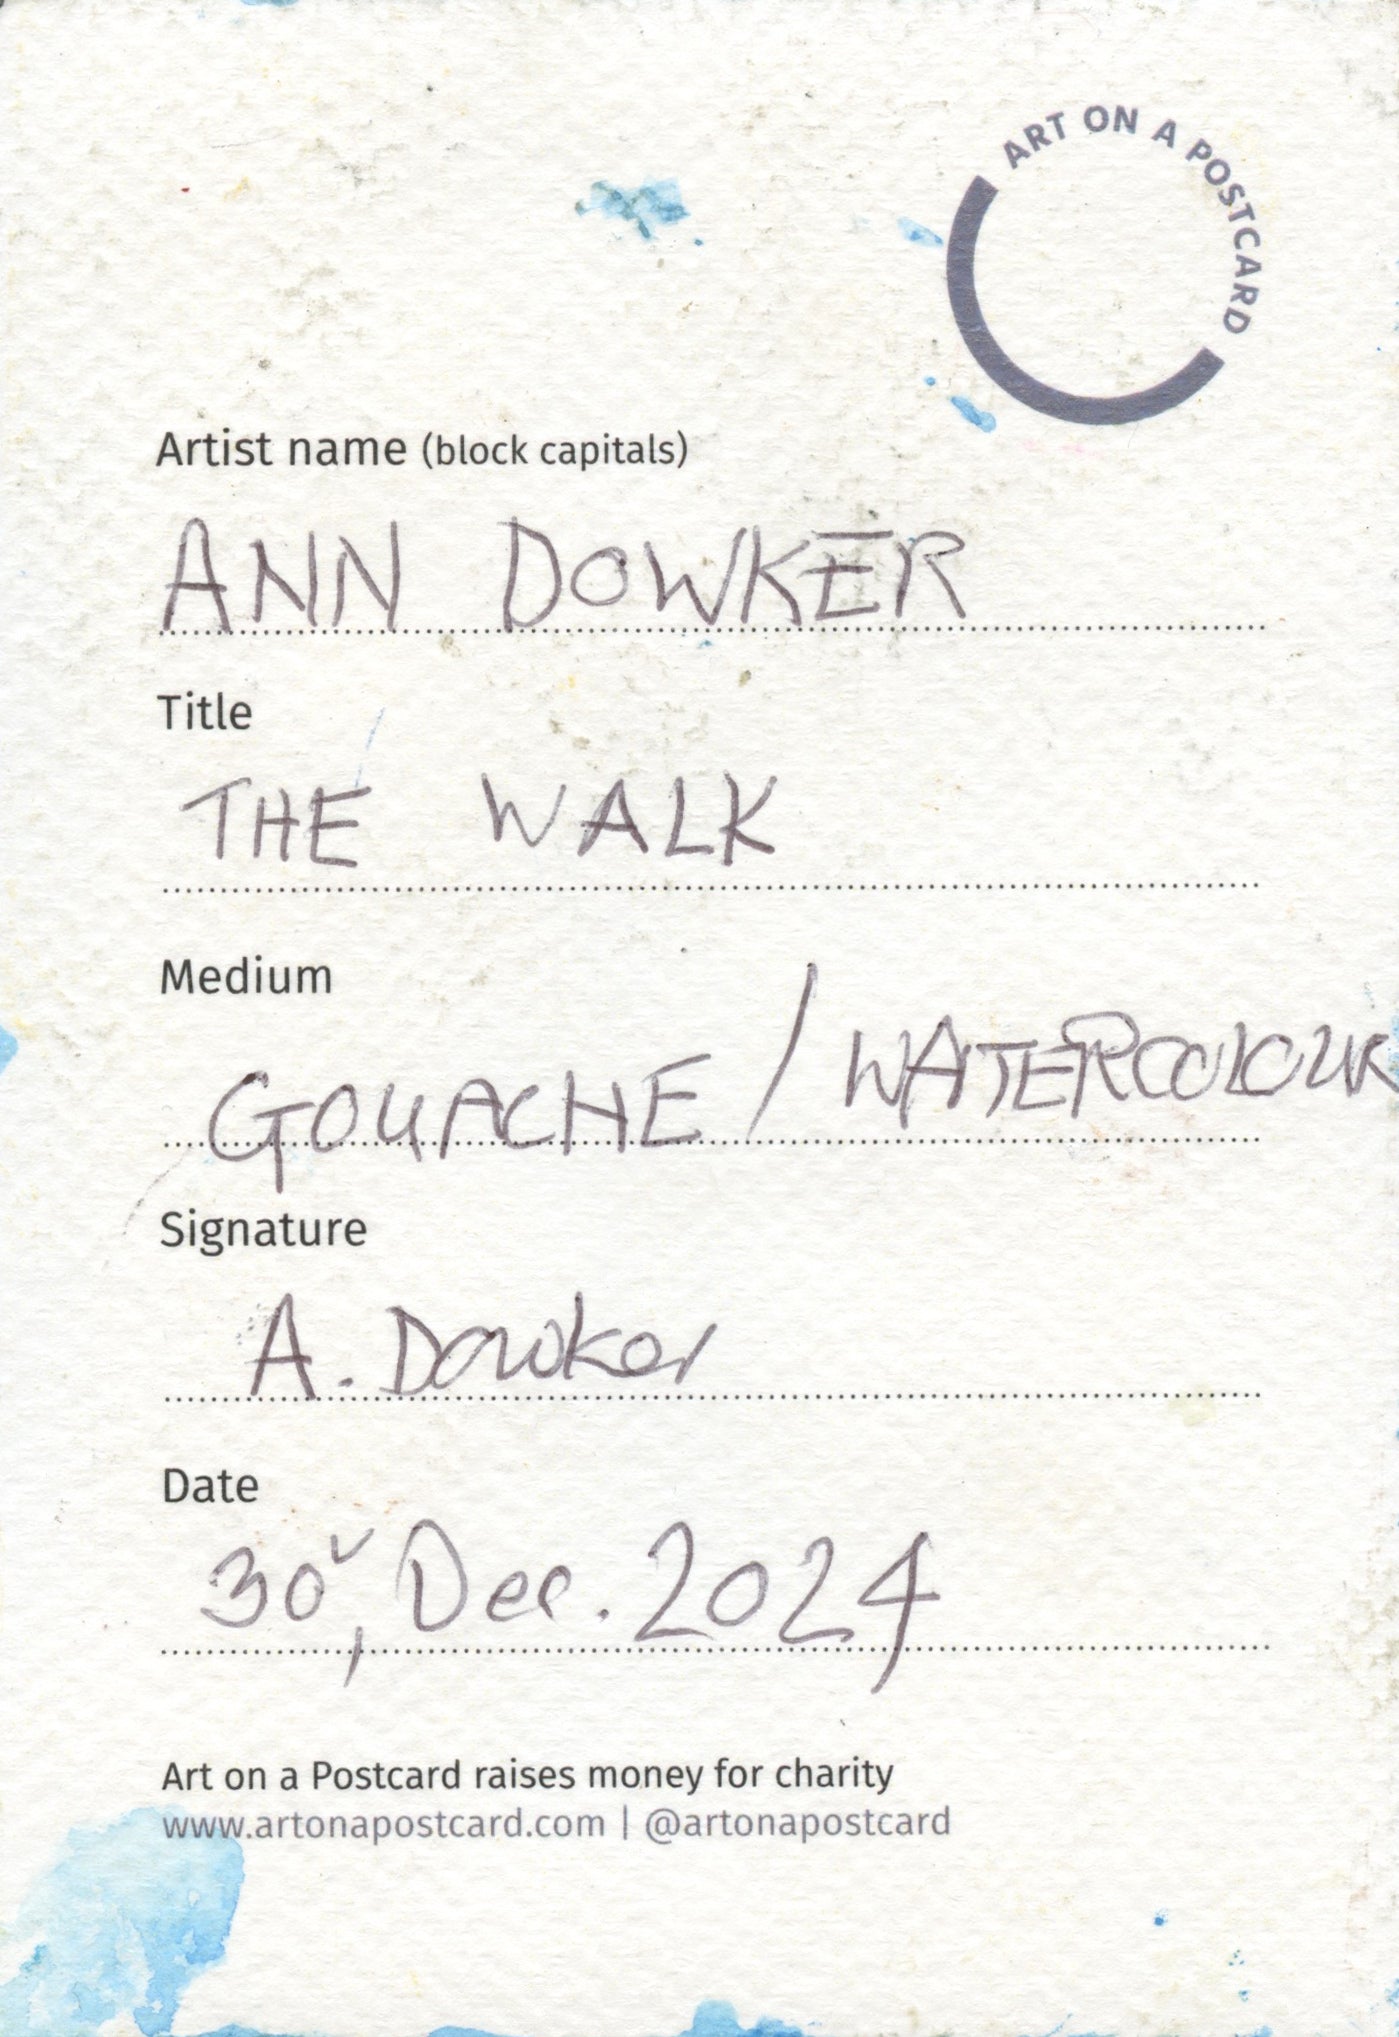 ART ON A POSTCARD
Artist name (block capitals)
ANN DOWKER
Title
THE WALK
Medium
GOUACHE / WATERCOLOUR
Signature
A. Dowker
Date
30, Dec. 2024
Art on a Postcard raises money for charity
www.artonapostcard.com | @artonapostcard